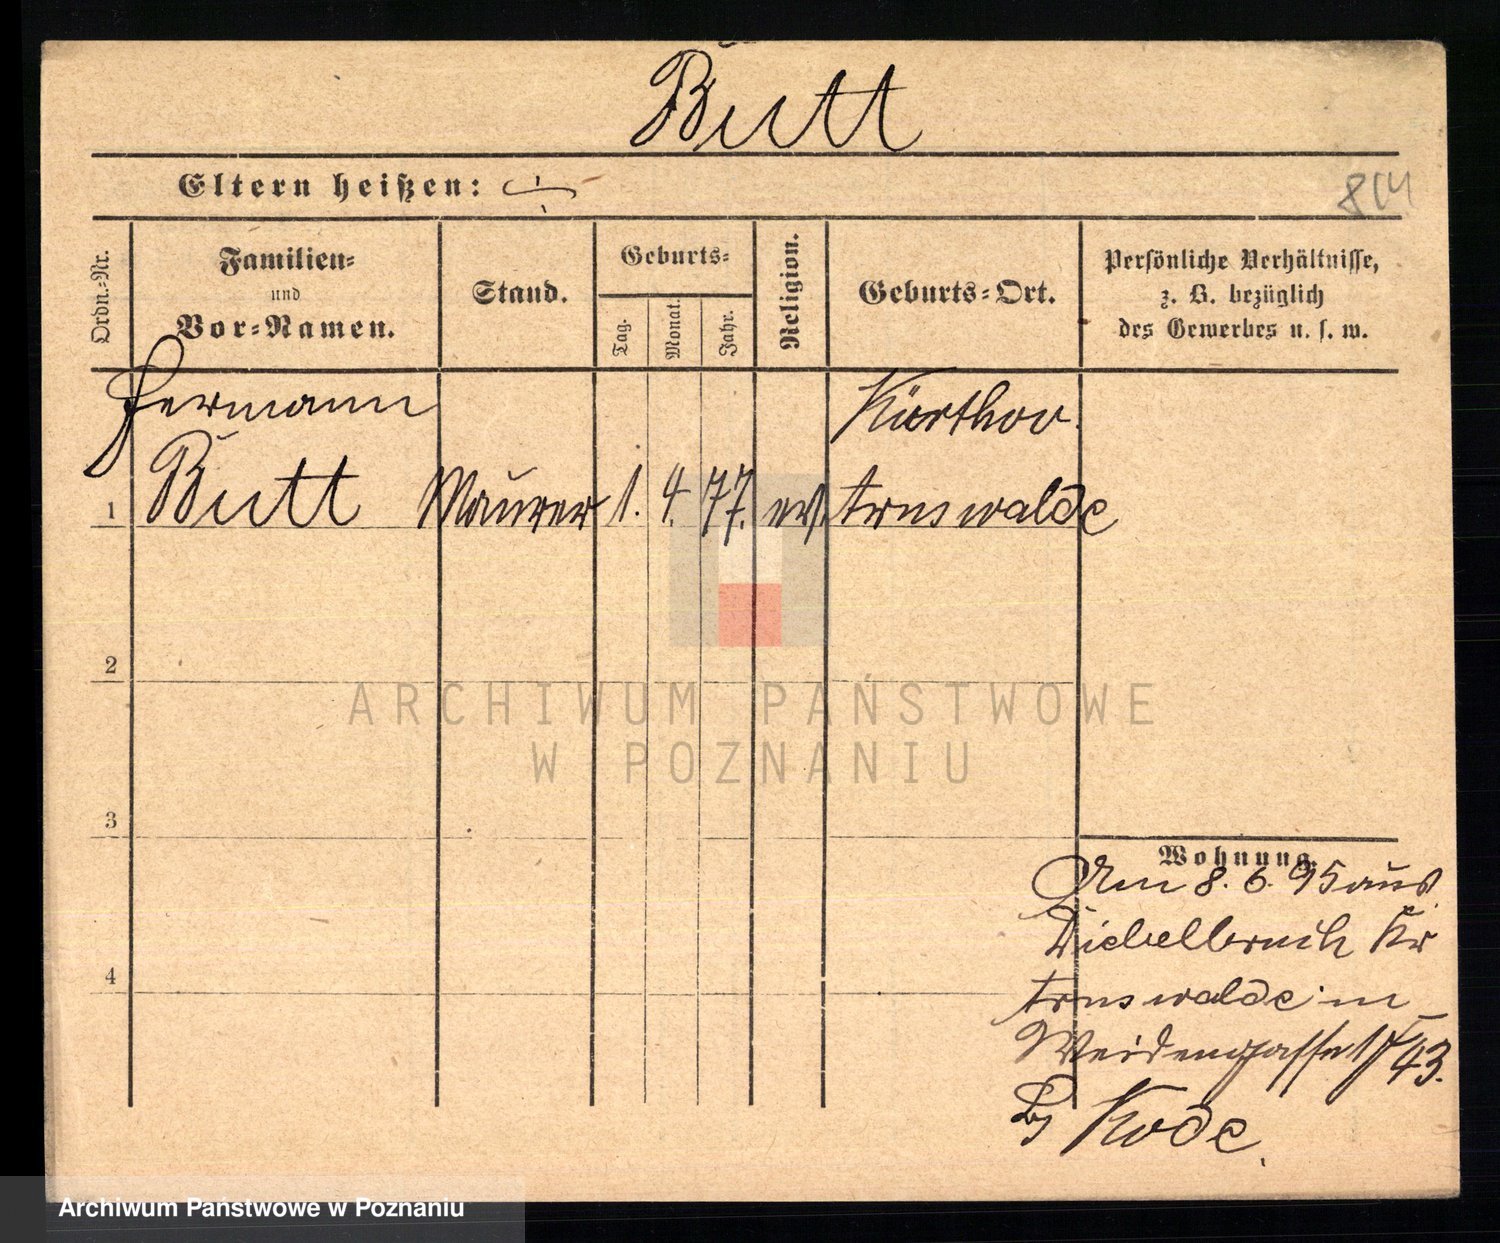 Butt
Eltern heißen: ÷
814
Ordn.-Nr.
Familien-
und
Vor-Namen.
Stand.
Geburts-
Tag.
Monat.
Jahr.
Religion.
Geburts-Ort.
Persönliche Verhältnisse,
z. B. bezüglich
des Gewerbes u. s. w.
Hermann
Kürthow.
1 Butt Maurer 1. 4. 77. ev. Arnswalde
2
ARCHIWUM PAŃSTWOWE
W POZNANIU
3
Wohnung.
Am 8. 6. 95 aus
Diebelbruch Kr
4
Arnswalde in
Weidengasse 43.
By Kode.
Archiwum Państwowe w Poznaniu